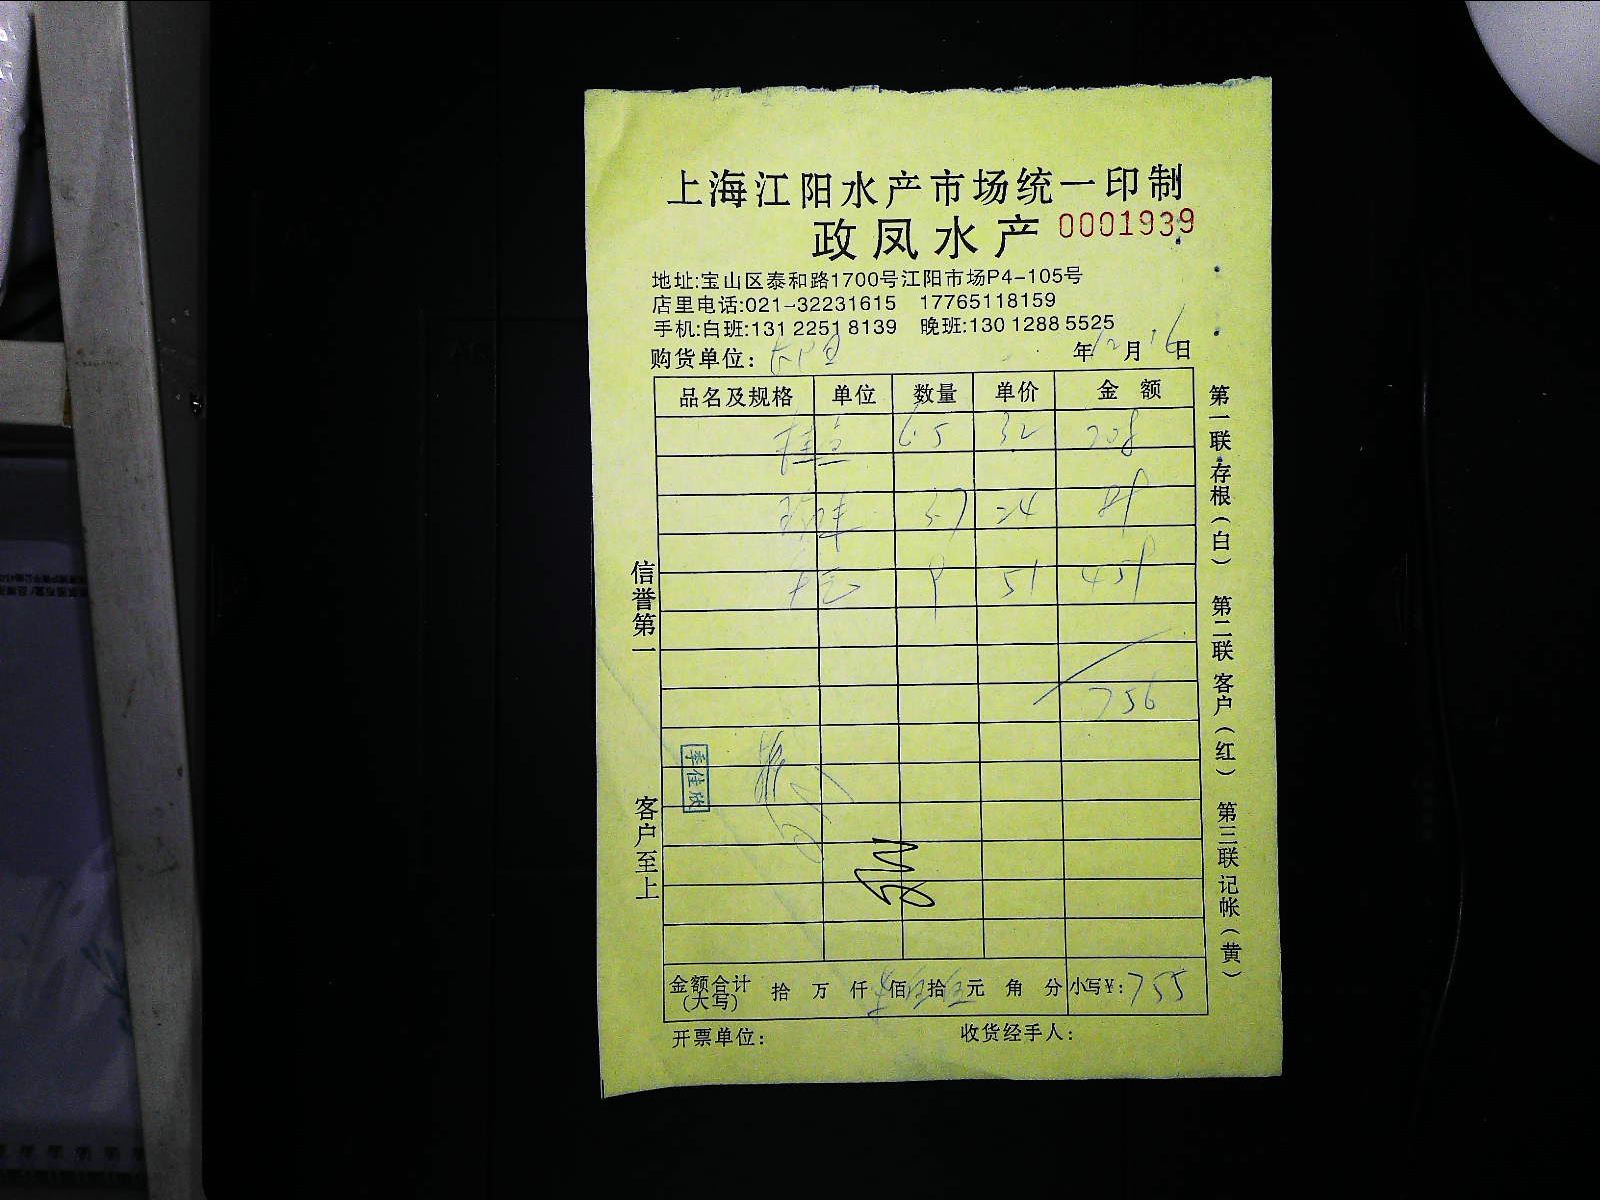 上海江阳水产市场统一印制
政凤水产 0001939
地址:宝山区泰和路1700号江阳市场P4-105号
店里电话:021-32231615 17765118159
手机:白班:131 2251 8139 晚班:130 1288 5525
购货单位: 年12月16日
品名及规格 单位 数量 单价 金额
6.5 32 208
3.7 24 89
9 51 459
756
季佳欣
金额合计(大写) 拾 万 仟 柒佰伍拾伍元 角 分 小写¥:755
开票单位: 收货经手人:
信誉第一 客户至上
第一联存根(白) 第二联客户(红) 第三联记帐(黄)